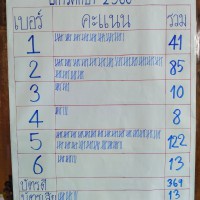 เบอร์ คะแนน รวม
1 41
2 85
3 10
4 8
5 122
6 13
บัตรดี 369
บัตรเสีย 13